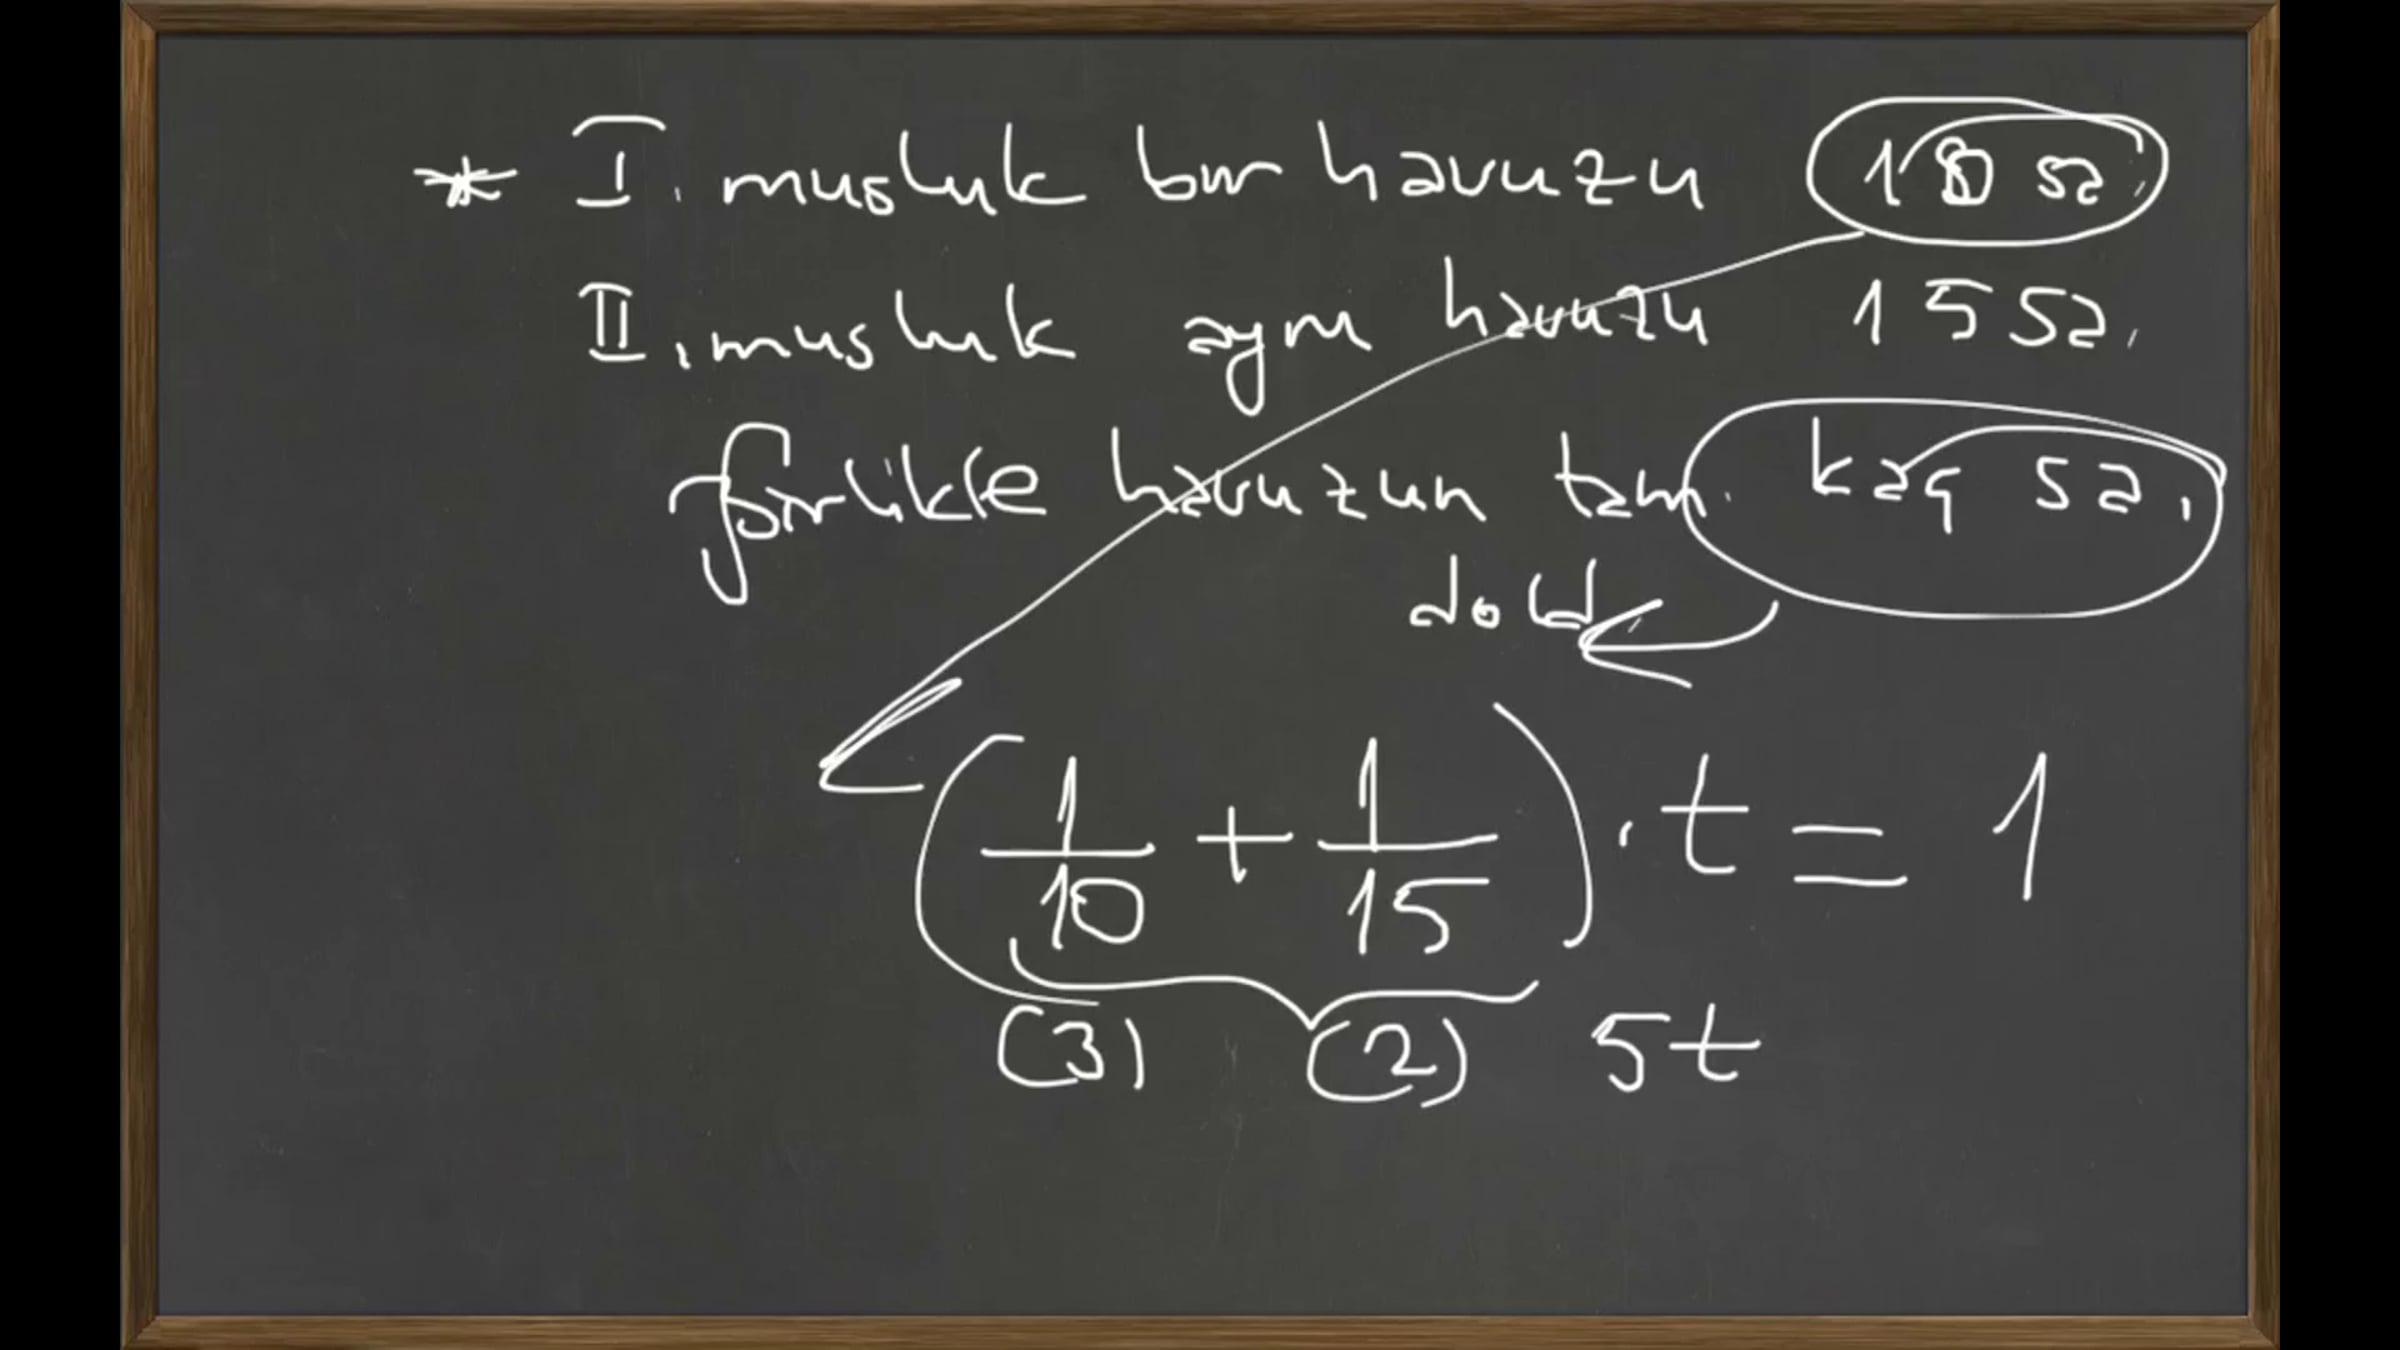 * I. musluk bir havuzu 10 sa.
II. musluk aynı havuzu 15 sa.
birlikte havuzun tam. kaç sa.
dold.
(1/10 + 1/15) . t = 1
(3) (2) 5t